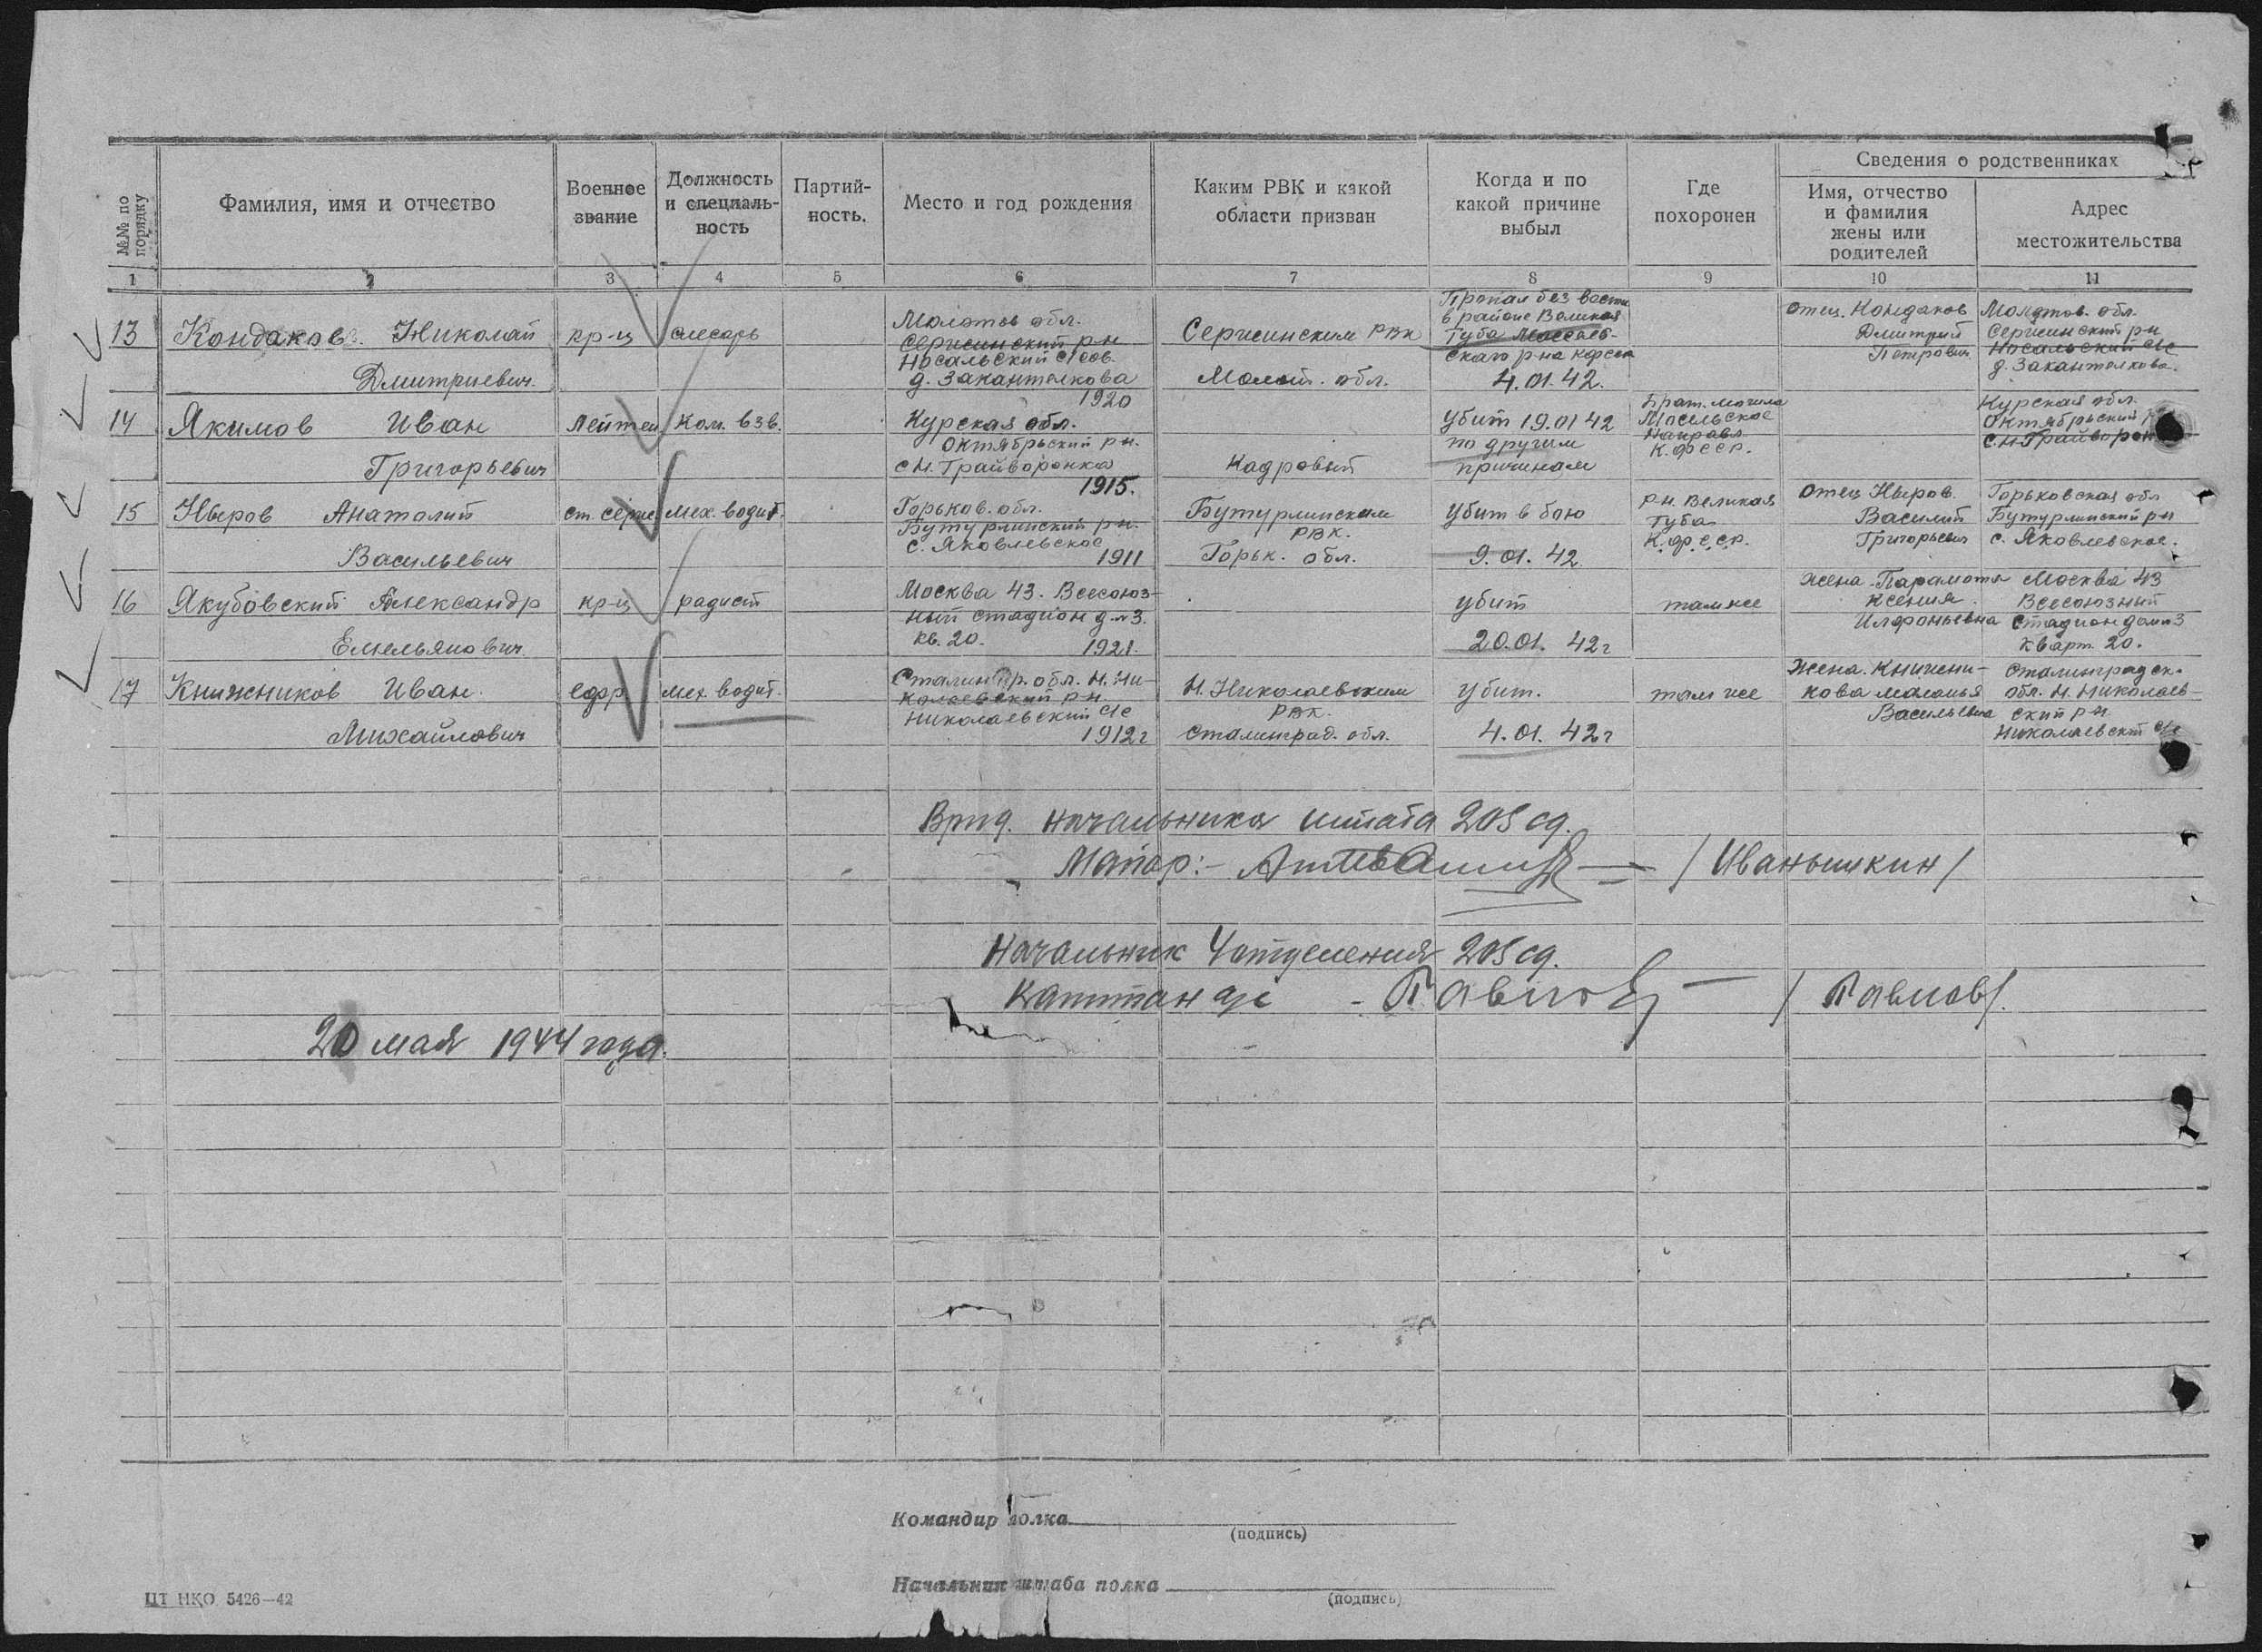 №№ по порядку
Фамилия, имя и отчество
Военное звание
Должность и специаль-ность
Партий-ность.
Место и год рождения
Каким РВК и какой области призван
Когда и по какой причине выбыл
Где похоронен
Сведения о родственниках
Имя, отчество и фамилия жены или родителей
Адрес местожительства
1 2 3 4 5 6 7 8 9 10 11
13 Кондаков Николай
Дмитриевич.
кр-ц слесарь
Молотов обл.
Сергинский р-н
Носальский с/сов.
д. Закантолкова
1920
Сергинским РВК
Молот. обл.
Пропал без вести
в районе Великая
Губа
ского р-на
4.01.42.
отец. Кондаков
Дмитрий
Петрович
Молотов. обл.
Сергинский рн
Носальский с/с
д. Закантолкова.
14 Якимов Иван
Григорьевич
Лейтен. Ком. взв.
Курская обл.
Октябрьский р-н.
ст. Грайворонка
1915.
Кадровый
убит 19.01 42
по другим
причинам
Брат. могила
Масельское
Направл.
К.ФССР.
Курская обл.
Октябрьский
15 Ныров Анатолий
Васильевич
ст. серж мех. водит.
Горьков. обл.
Бутурлинский р-н.
с. Яковлевское
1911
Бутурлинским
РВК.
Горьк. обл.
убит в бою
9.01.42
рн. Великая
Губа
К.Ф.С.С.Р.
отец Ныров.
Василий
Григорьевич
Горьковская обл
Бутурлинский рн
с. Яковлевское.
16 Якубовский Александр
Емельянович.
кр-ц радист
Москва 43. Всесоюз-
ный стадион д-№3.
кв. 20.
1921.
убит
20.01. 42г
там же
жена
Ксения
Москва 43
Всесоюзный
Стадион дом №3
кварт. 20.
17 Книжников Иван.
Михайлович
ефр мех. водит.
Сталингр. обл. Н. Ни-
колаевский р-н
Николаевский с/с
1912г
Н. Николаевским
РВК.
Сталинград. обл.
убит.
4.01. 42г
там же
жена. Книжни-
кова Маланья
Васильевна
Сталинградск.
обл. Н. Николаев-
ский р-н
Николаевский с/с
Врид. начальника штаба 205 сд.
Майор:- /Иванышкин/
Начальник 4 отделения 205 сд.
Капитан а/с - Павлов /Павлов/.
20 мая 1944 года.
Командир полка
(подпись)
Начальник штаба полка
(подпись)
ЦТ НКО 5426—42